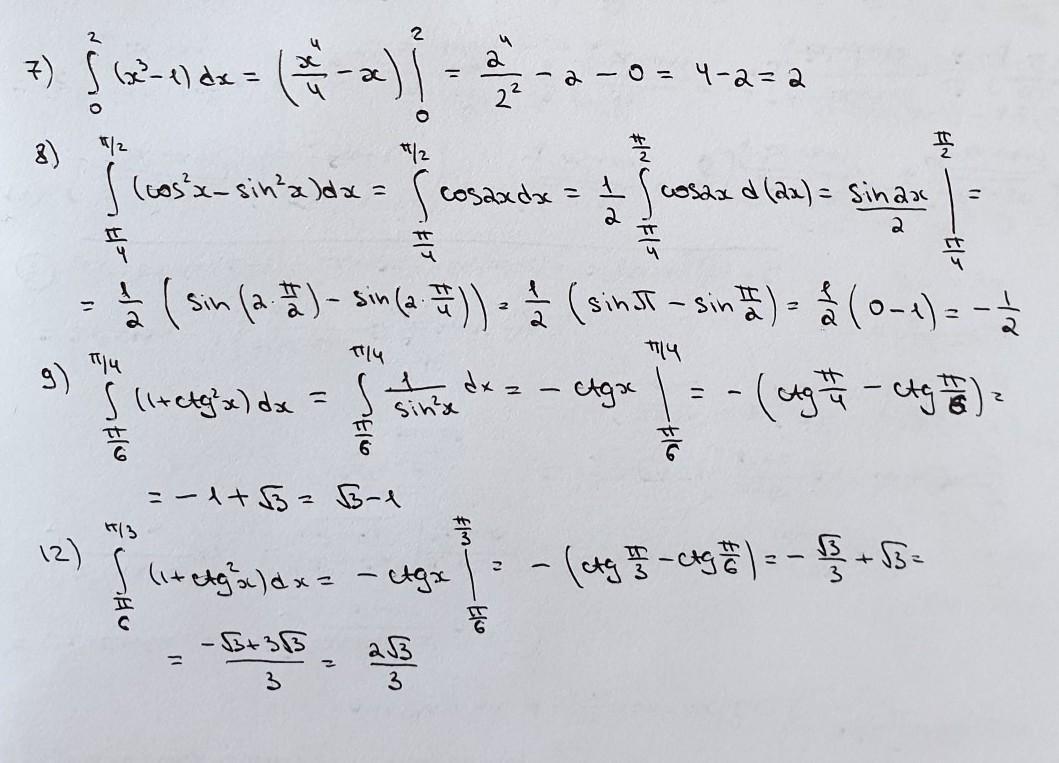 7) ∫₀² (x³-1) dx = (x⁴/4 - x) |₀² = 2⁴/2² - 2 - 0 = 4-2 = 2
8) ∫_{π/4}^{π/2} (cos²x - sin²x)dx = ∫_{π/4}^{π/2} cos2xdx = 1/2 ∫_{π/4}^{π/2} cos2x d(2x) = sin2x/2 |_{π/4}^{π/2} =
= 1/2 (sin(2·π/2) - sin(2·π/4)) = 1/2 (sinπ - sin π/2) = 1/2 (0-1) = -1/2
9) ∫_{π/6}^{π/4} (1+ctg²x) dx = ∫_{π/6}^{π/4} 1/sin²x dx = - ctgx |_{π/6}^{π/4} = - (ctg π/4 - ctg π/6) =
= -1+√3 = √3-1
12) ∫_{π/6}^{π/3} (1+ctg²x)dx = - ctgx |_{π/6}^{π/3} = - (ctg π/3 - ctg π/6) = - √3/3 + √3 =
= (-√3+3√3)/3 = 2√3/3